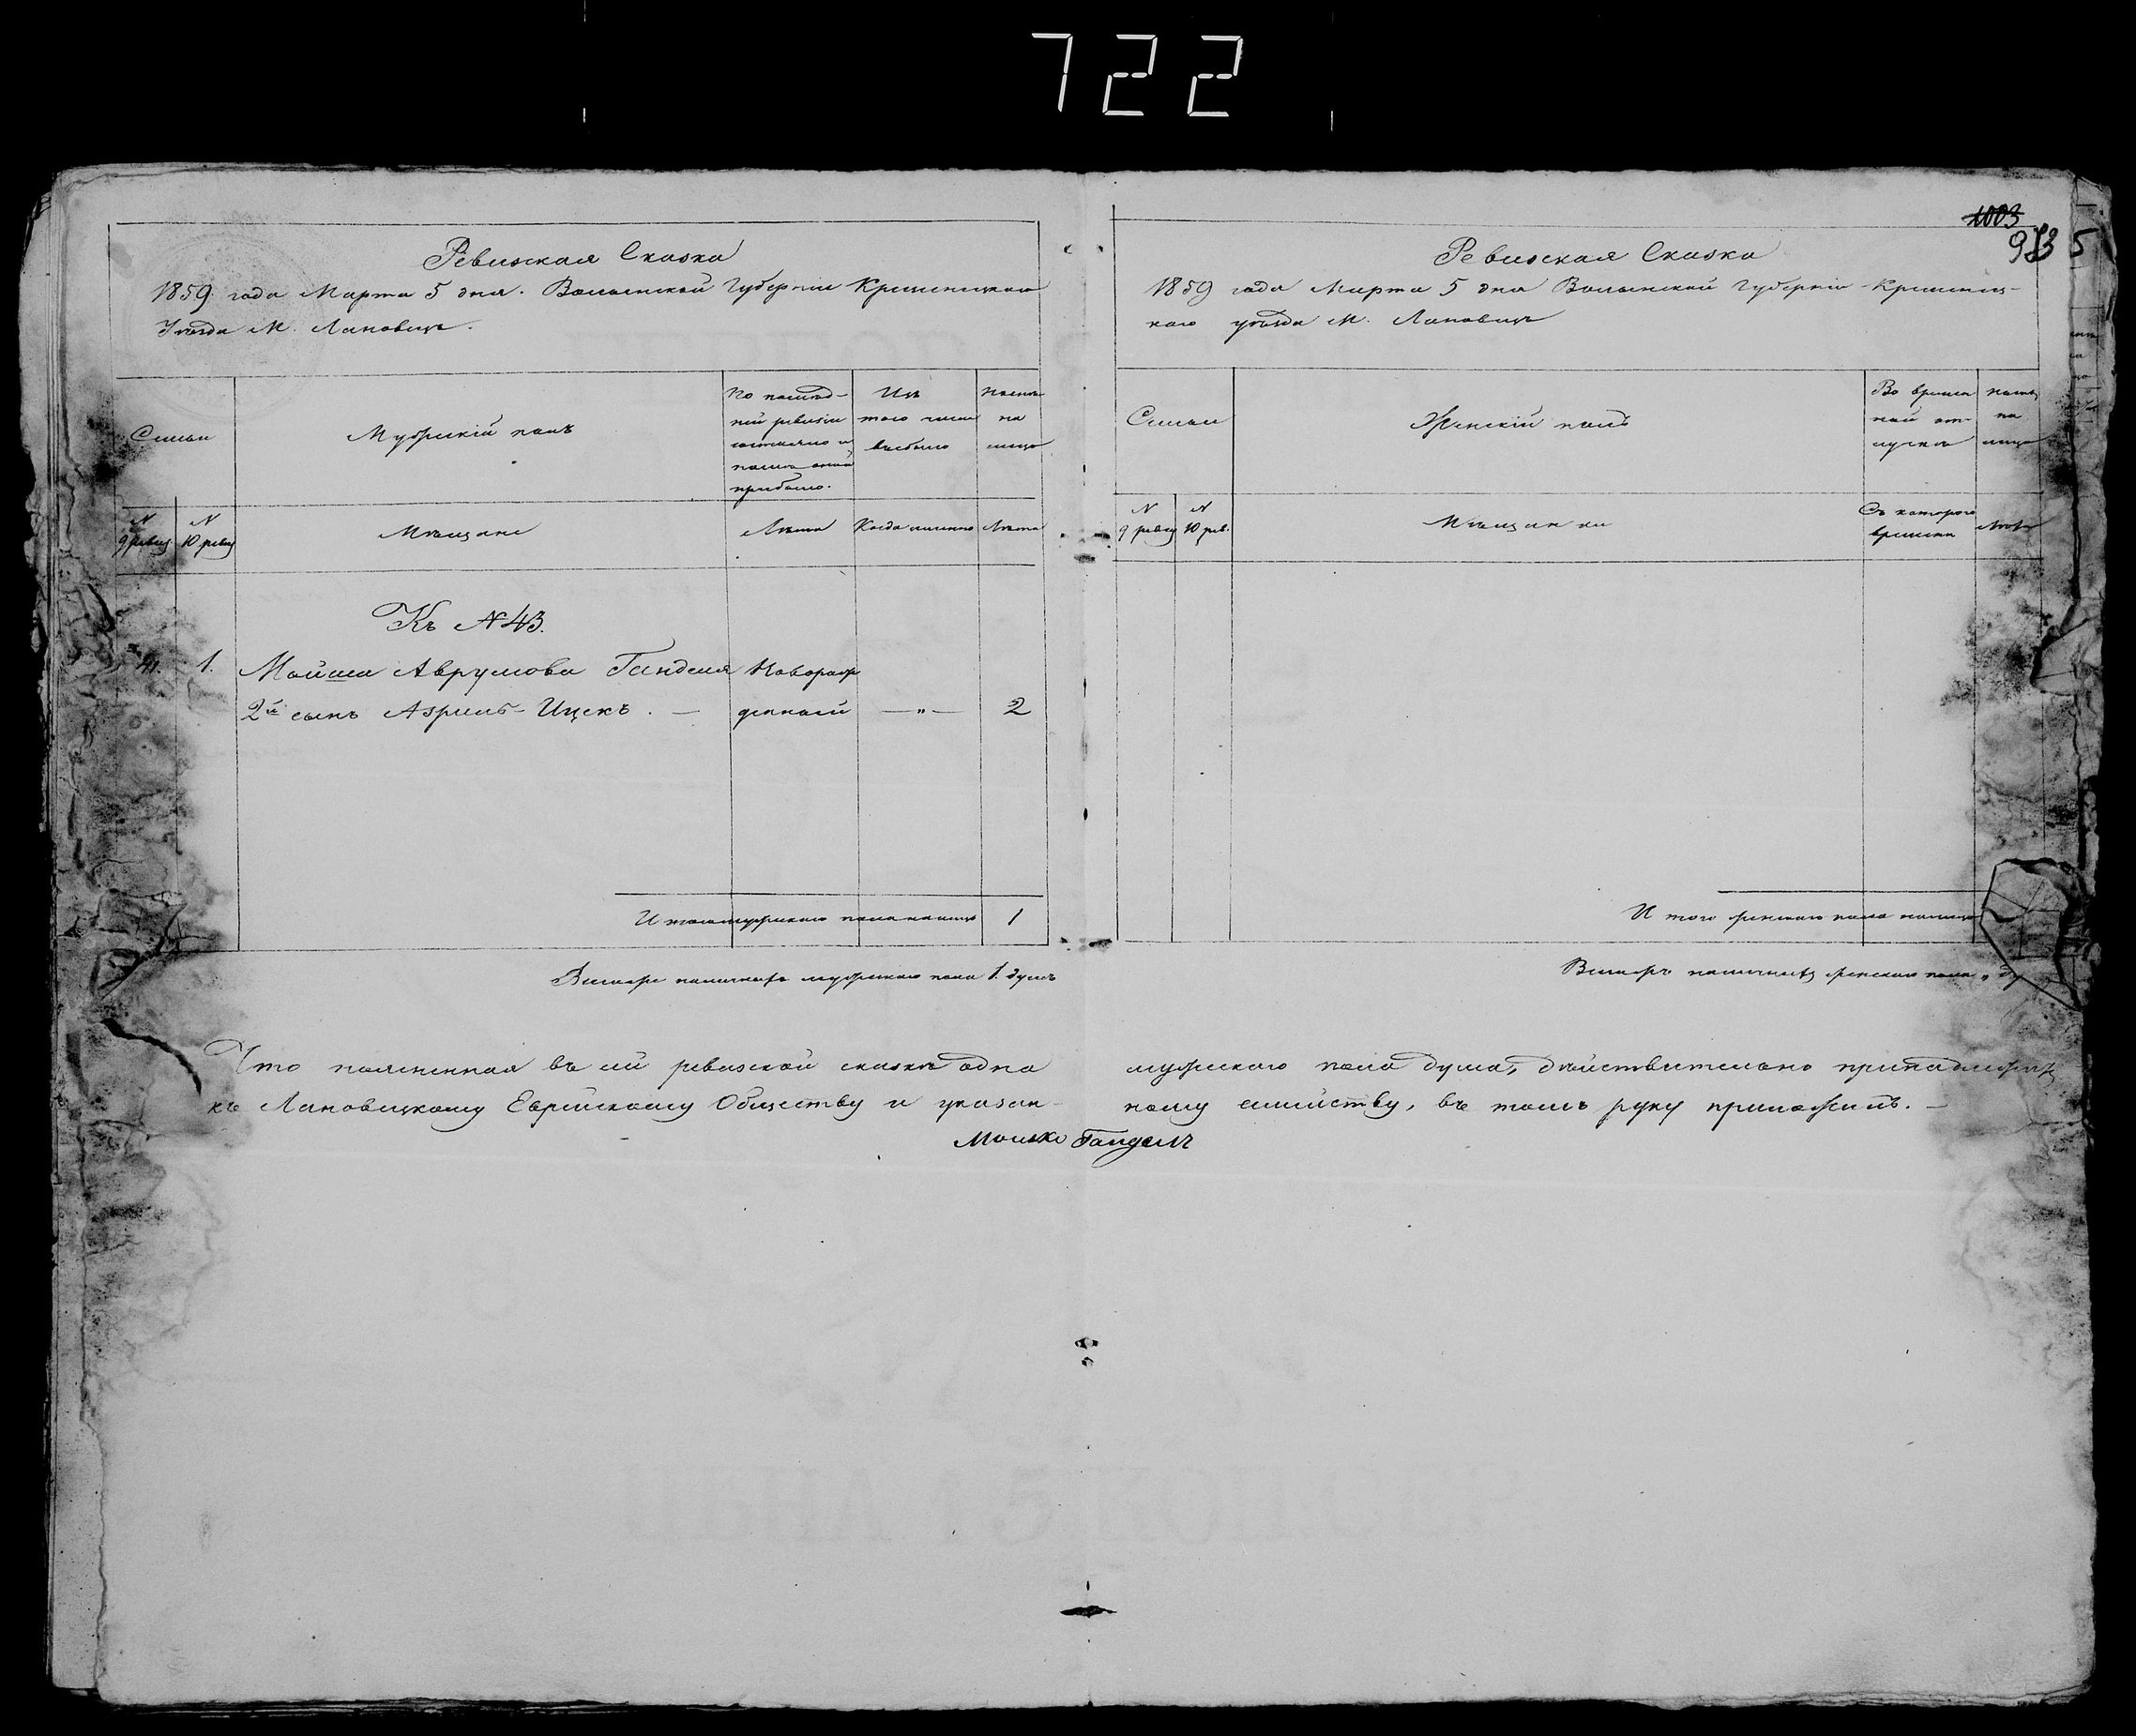 722
1003
973 5
Ревизская Сказка
1859 года Марта 5 дня. Волынской Губернии Кременецкаго
Уезда М. Лановец.
Семьи
Мужескій полъ
По послед-
ней ревизіи
состояло и
после оной
прибыло.
Изъ
того числа
выбыло
Ныне
на
лицо
N
9 ревиз
N
10 ревиз
Мѣщане
Лѣта
Когда именно
Лѣта
Къ N 43.
1. Мойша Аврумова Гандель Новорож
2й сынъ Азриль-Ицекъ. — денный — " — 2
Итого мужескаго пола налицо 1
Всего наличныхъ мужескаго пола 1. душъ
Ревизская Сказка
1859 года Марта 5 дня Волынской Губерніи Кременец-
каго уѣзда М. Лановецъ
Семьи
Женскій полъ
Во времен
ной от-
лучкѣ
Ныне
на
лицо
N
9 ревиз
N
10 рев.
Мѣщанки
Съ котораго
времени
Лѣта
Итого женскаго пола налицо
Всего наличныхъ женскаго пола „ ду
Что поясненная въ сей ревизской сказкѣ одна мужескаго пола душа, дѣйствительно принадлежитъ
къ Лановецкому Еврейскому Обществу и указан- ному семейству, въ томъ руку приложилъ. —
Мошко Гандель